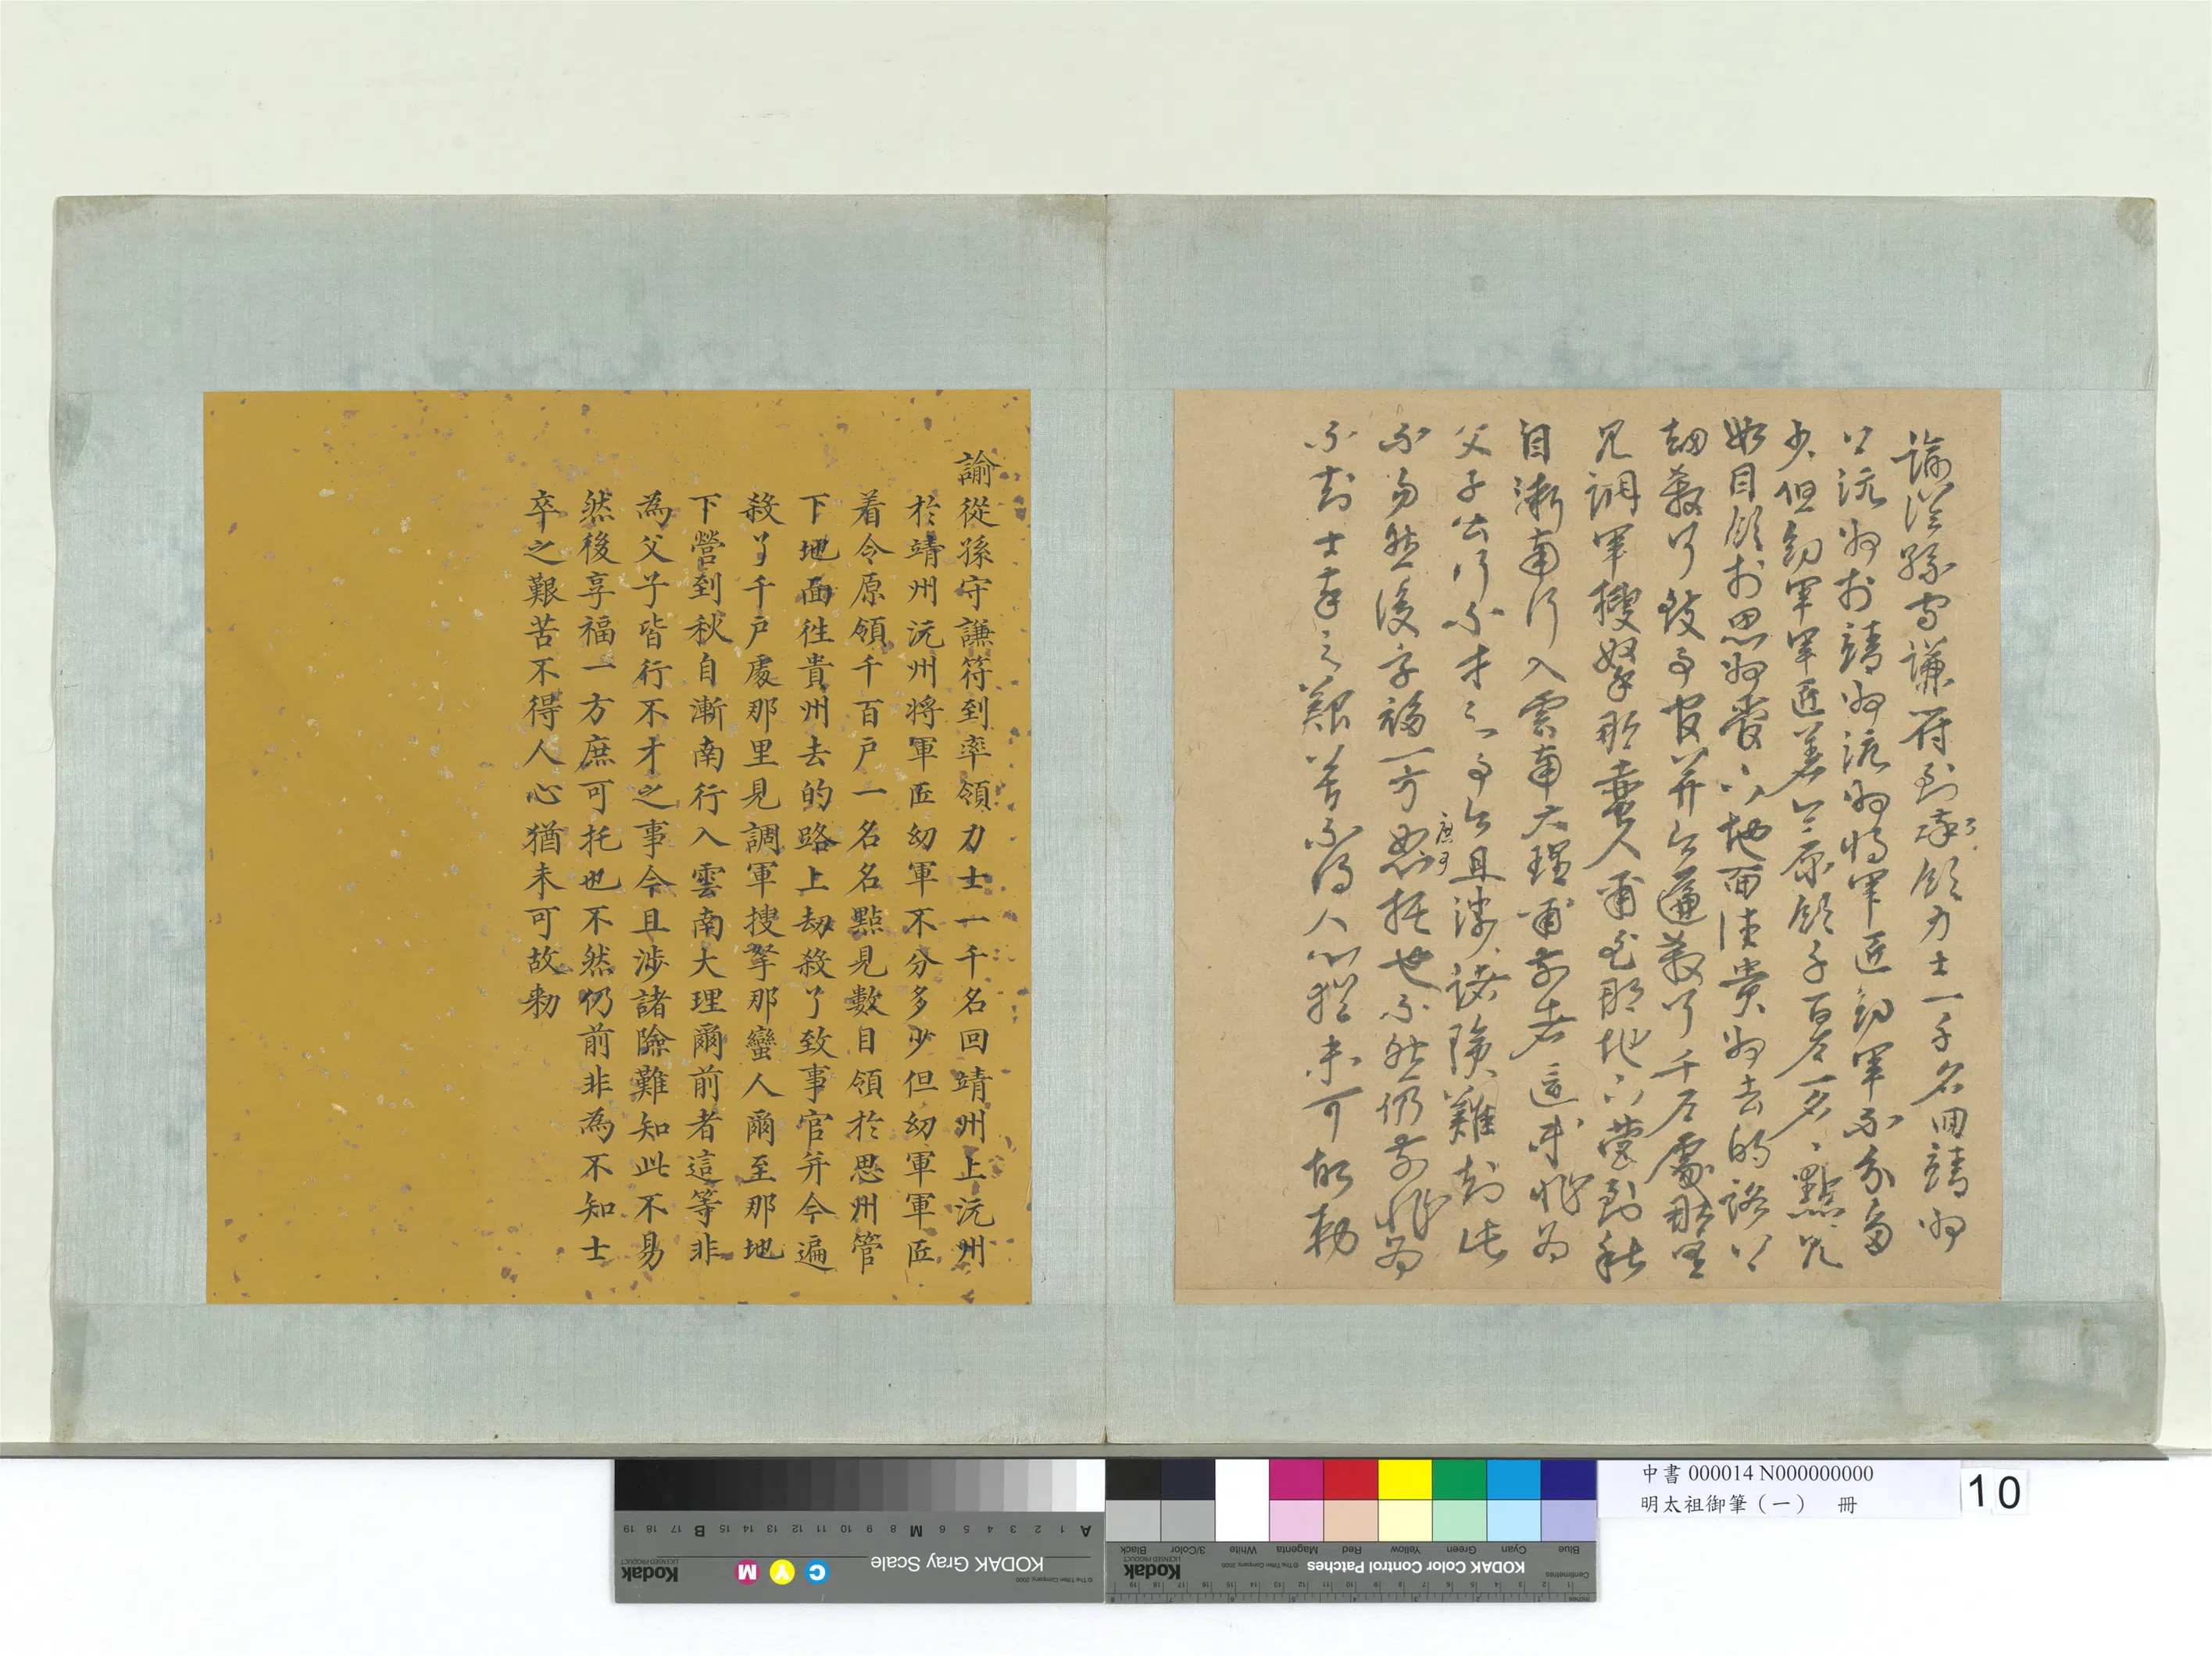 諭從孫守謙符到率領力士一千名回靖州
上沅州於靖州沅州將軍匠幼軍不分多
少但幼軍軍匠着令原領千百户一名〻點見
數目領於思州管下地面往貴州去的路上
劫殺了致事官并令遍殺了千户處那里
見調軍搜拏那蠻人爾至那地下營到秋
自漸南行入雲南大理爾前者這等非為
父子皆行不才之事今且涉諸險難知此
不易然後享福一方庶可托也不然仍前非為
不知士卒之艱苦不得人心猶未可故勑
諭從孫守謙符到率領力士一千名回靖州上沅州
於靖州沅州将軍匠幼軍不分多少但幼軍軍匠
着令原領千百户一名名點見數目領於思州管
下地面徃貴州去的路上劫殺了致事官并令遍
殺了千户處那里見調軍搜拏那蠻人爾至那地
下營到秋自漸南行入雲南大理爾前者這等非
為父子皆行不才之事今且涉諸險難知此不易
然後享福一方庶可托也不然仍前非為不知士
卒之艱苦不得人心猶未可故勑
中書 000014 N000000000
明太祖御筆（一） 冊
10
KODAK Gray Scale
Kodak
LICENSED PRODUCT
C Y M
A 1 2 3 4 5 6 M 8 9 10 11 12 13 14 15 B 17 18 19
© The Tiffen Company, 2000
KODAK Color Control Patches
Kodak
LICENSED PRODUCT
© The Tiffen Company, 2000
Blue Cyan Green Yellow Red Magenta White 3/Color Black
Centimetres
Inches